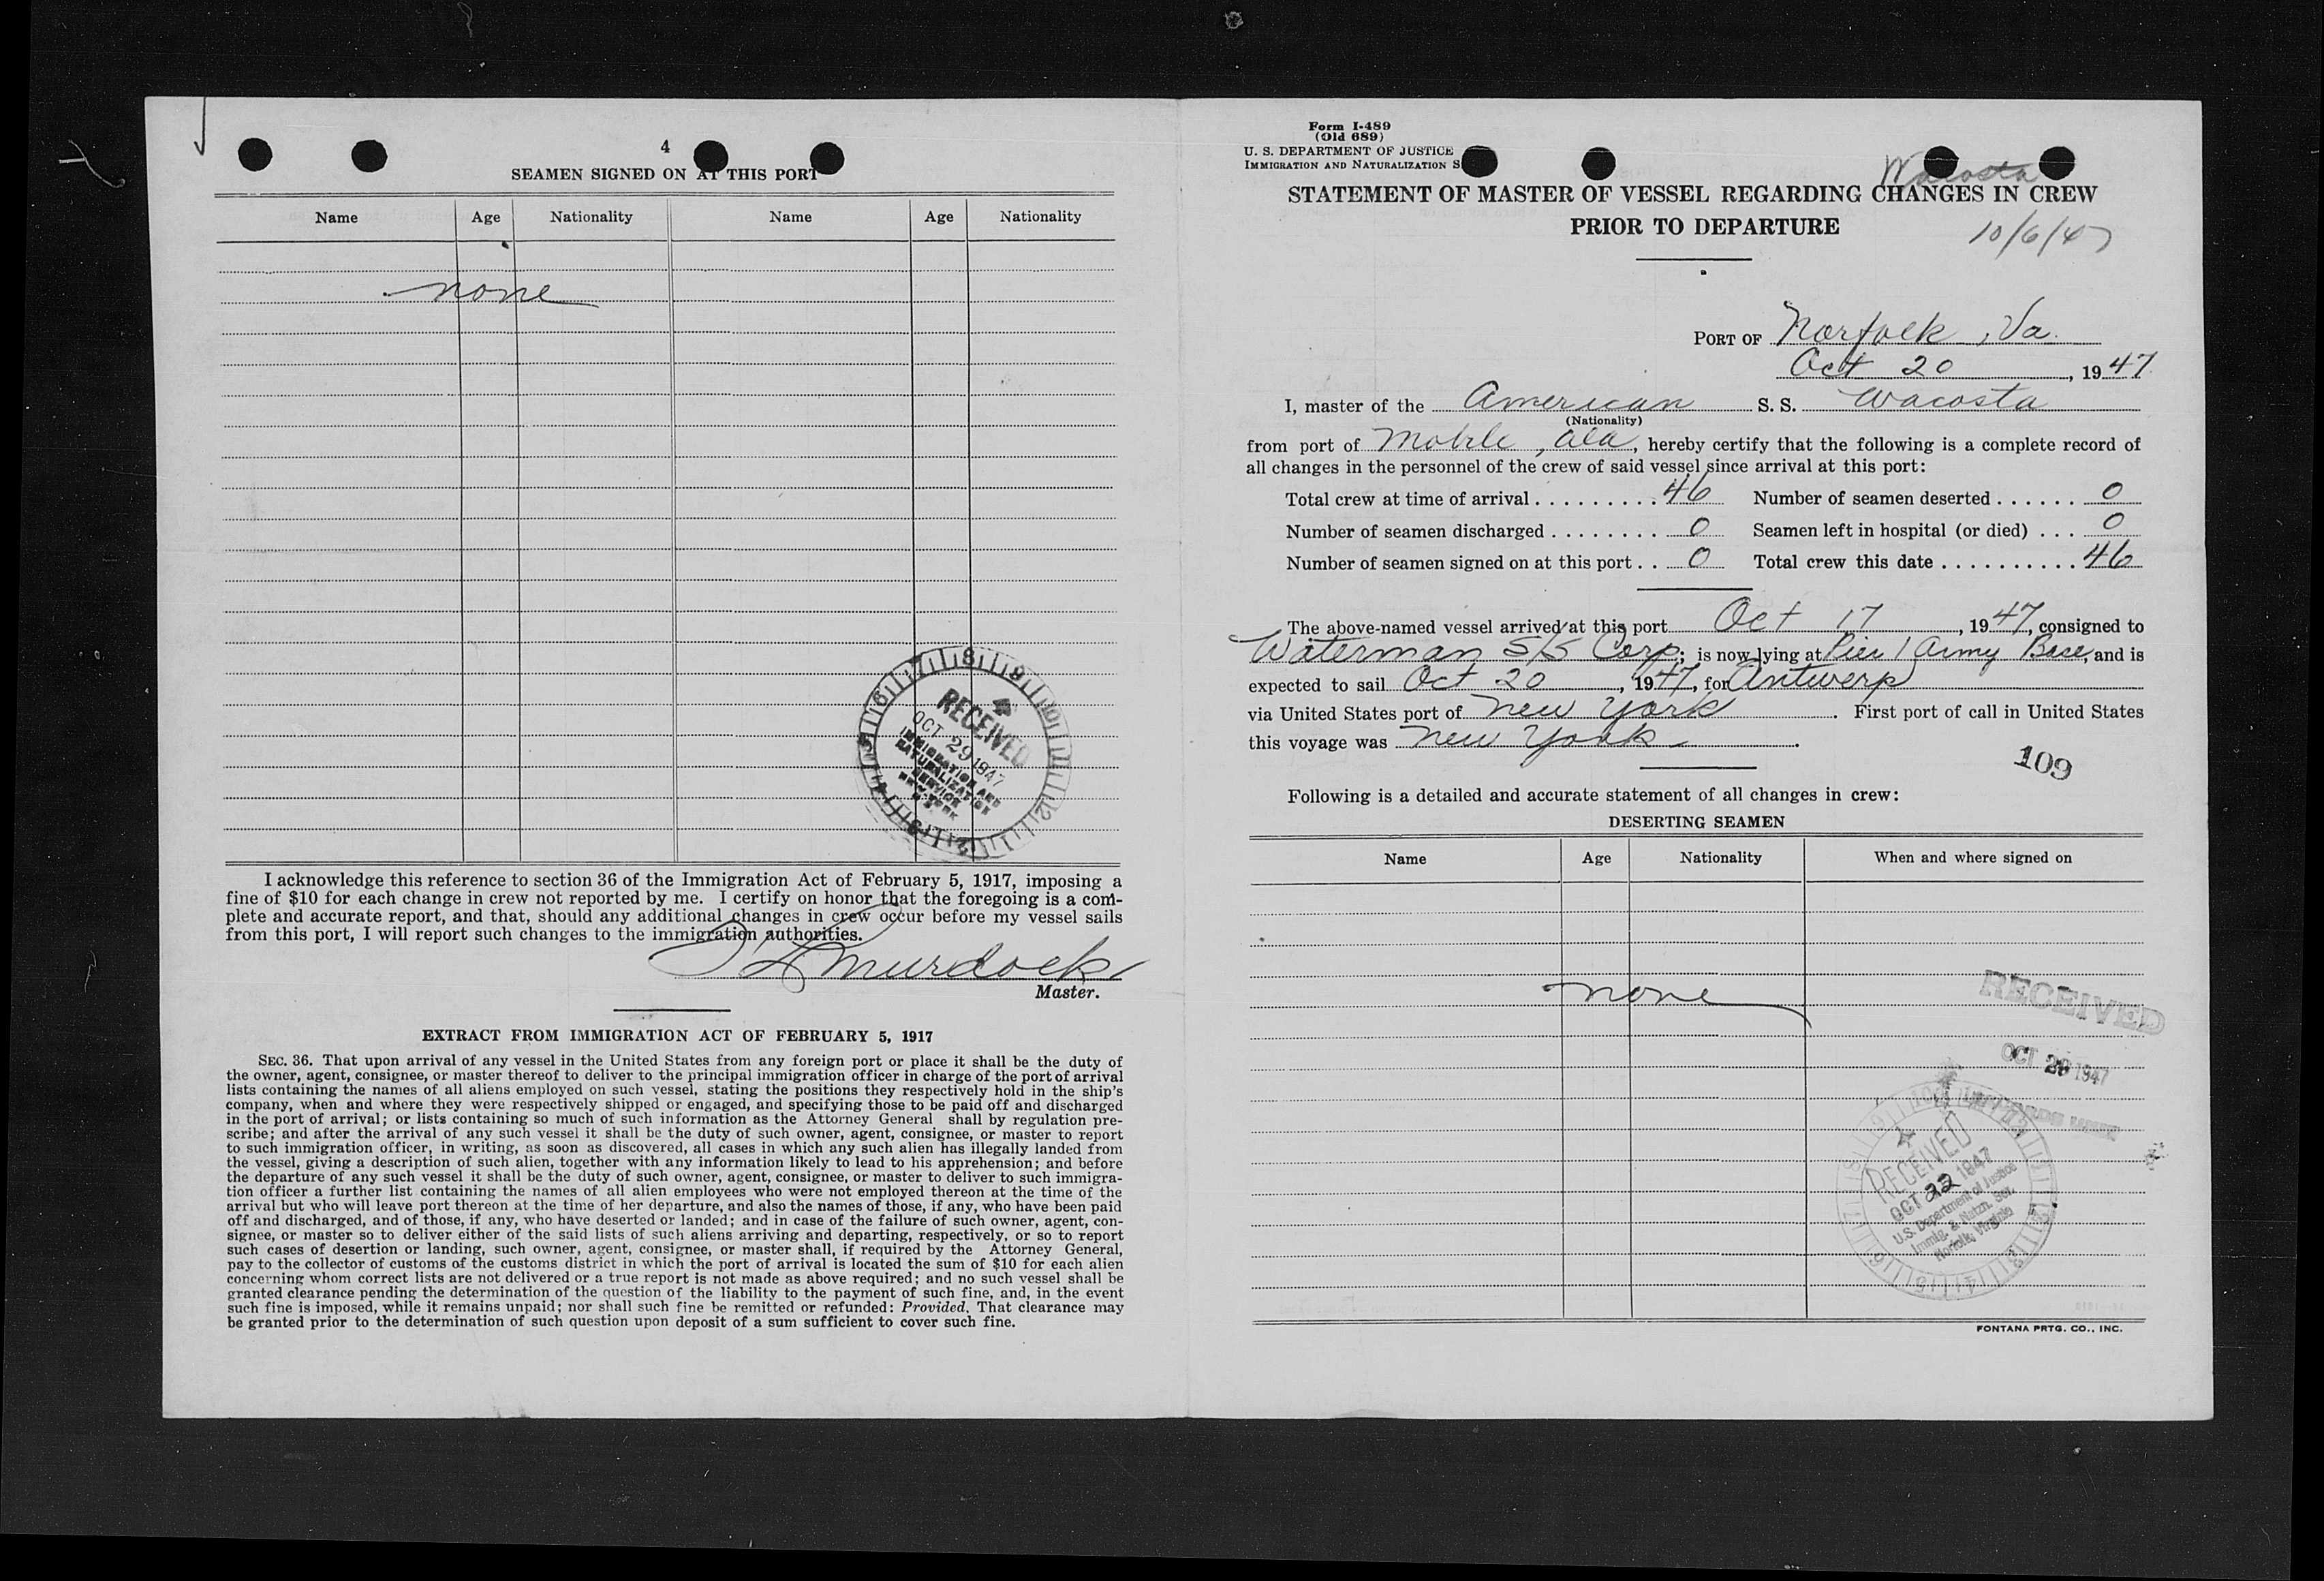 4
SEAMEN SIGNED ON AT THIS PORT
Name Age Nationality Name Age Nationality
none
RECEIVED
OCT 29 1947
IMMIGRATION AND
NATURALIZATION
SERVICE
I acknowledge this reference to section 36 of the Immigration Act of February 5, 1917, imposing a
fine of $10 for each change in crew not reported by me. I certify on honor that the foregoing is a com-
plete and accurate report, and that, should any additional changes in crew occur before my vessel sails
from this port, I will report such changes to the immigration authorities.
Murdock
Master.
EXTRACT FROM IMMIGRATION ACT OF FEBRUARY 5, 1917
SEC. 36. That upon arrival of any vessel in the United States from any foreign port or place it shall be the duty of
the owner, agent, consignee, or master thereof to deliver to the principal immigration officer in charge of the port of arrival
lists containing the names of all aliens employed on such vessel, stating the positions they respectively hold in the ship's
company, when and where they were respectively shipped or engaged, and specifying those to be paid off and discharged
in the port of arrival; or lists containing so much of such information as the Attorney General shall by regulation pre-
scribe; and after the arrival of any such vessel it shall be the duty of such owner, agent, consignee, or master to report
to such immigration officer, in writing, as soon as discovered, all cases in which any such alien has illegally landed from
the vessel, giving a description of such alien, together with any information likely to lead to his apprehension; and before
the departure of any such vessel it shall be the duty of such owner, agent, consignee, or master to deliver to such immigra-
tion officer a further list containing the names of all alien employees who were not employed thereon at the time of the
arrival but who will leave port thereon at the time of her departure, and also the names of those, if any, who have been paid
off and discharged, and of those, if any, who have deserted or landed; and in case of the failure of such owner, agent, con-
signee, or master so to deliver either of the said lists of such aliens arriving and departing, respectively, or so to report
such cases of desertion or landing, such owner, agent, consignee, or master shall, if required by the Attorney General,
pay to the collector of customs of the customs district in which the port of arrival is located the sum of $10 for each alien
concerning whom correct lists are not delivered or a true report is not made as above required; and no such vessel shall be
granted clearance pending the determination of the question of the liability to the payment of such fine, and, in the event
such fine is imposed, while it remains unpaid; nor shall such fine be remitted or refunded: Provided, That clearance may
be granted prior to the determination of such question upon deposit of a sum sufficient to cover such fine.
Form I-489
(Old 689)
U. S. DEPARTMENT OF JUSTICE
IMMIGRATION AND NATURALIZATION S
Wacosta
STATEMENT OF MASTER OF VESSEL REGARDING CHANGES IN CREW
PRIOR TO DEPARTURE
10/6/47
PORT OF Norfolk, Va.
Oct 20, 1947
I, master of the American S. S. Wacosta
(Nationality)
from port of Mobile, Ala, hereby certify that the following is a complete record of
all changes in the personnel of the crew of said vessel since arrival at this port:
Total crew at time of arrival . . . . . . . . . 46 Number of seamen deserted . . . . . . 0
Number of seamen discharged . . . . . . . . 0 Seamen left in hospital (or died) . . . 0
Number of seamen signed on at this port . . 0 Total crew this date . . . . . . . . . . 46
The above-named vessel arrived at this port Oct 17, 1947, consigned to
Waterman S/S Corp; is now lying at Pier 1 Army Base, and is
expected to sail Oct 20, 1947, for Antwerp
via United States port of New York. First port of call in United States
this voyage was New York.
109
Following is a detailed and accurate statement of all changes in crew:
DESERTING SEAMEN
Name Age Nationality When and where signed on
none
RECEIVED
OCT 1947
RECEIVED
OCT 22 1947
U.S. Department of Justice
Immig. & Natzn. Ser.
Norfolk, Virginia
FONTANA PRTG. CO., INC.